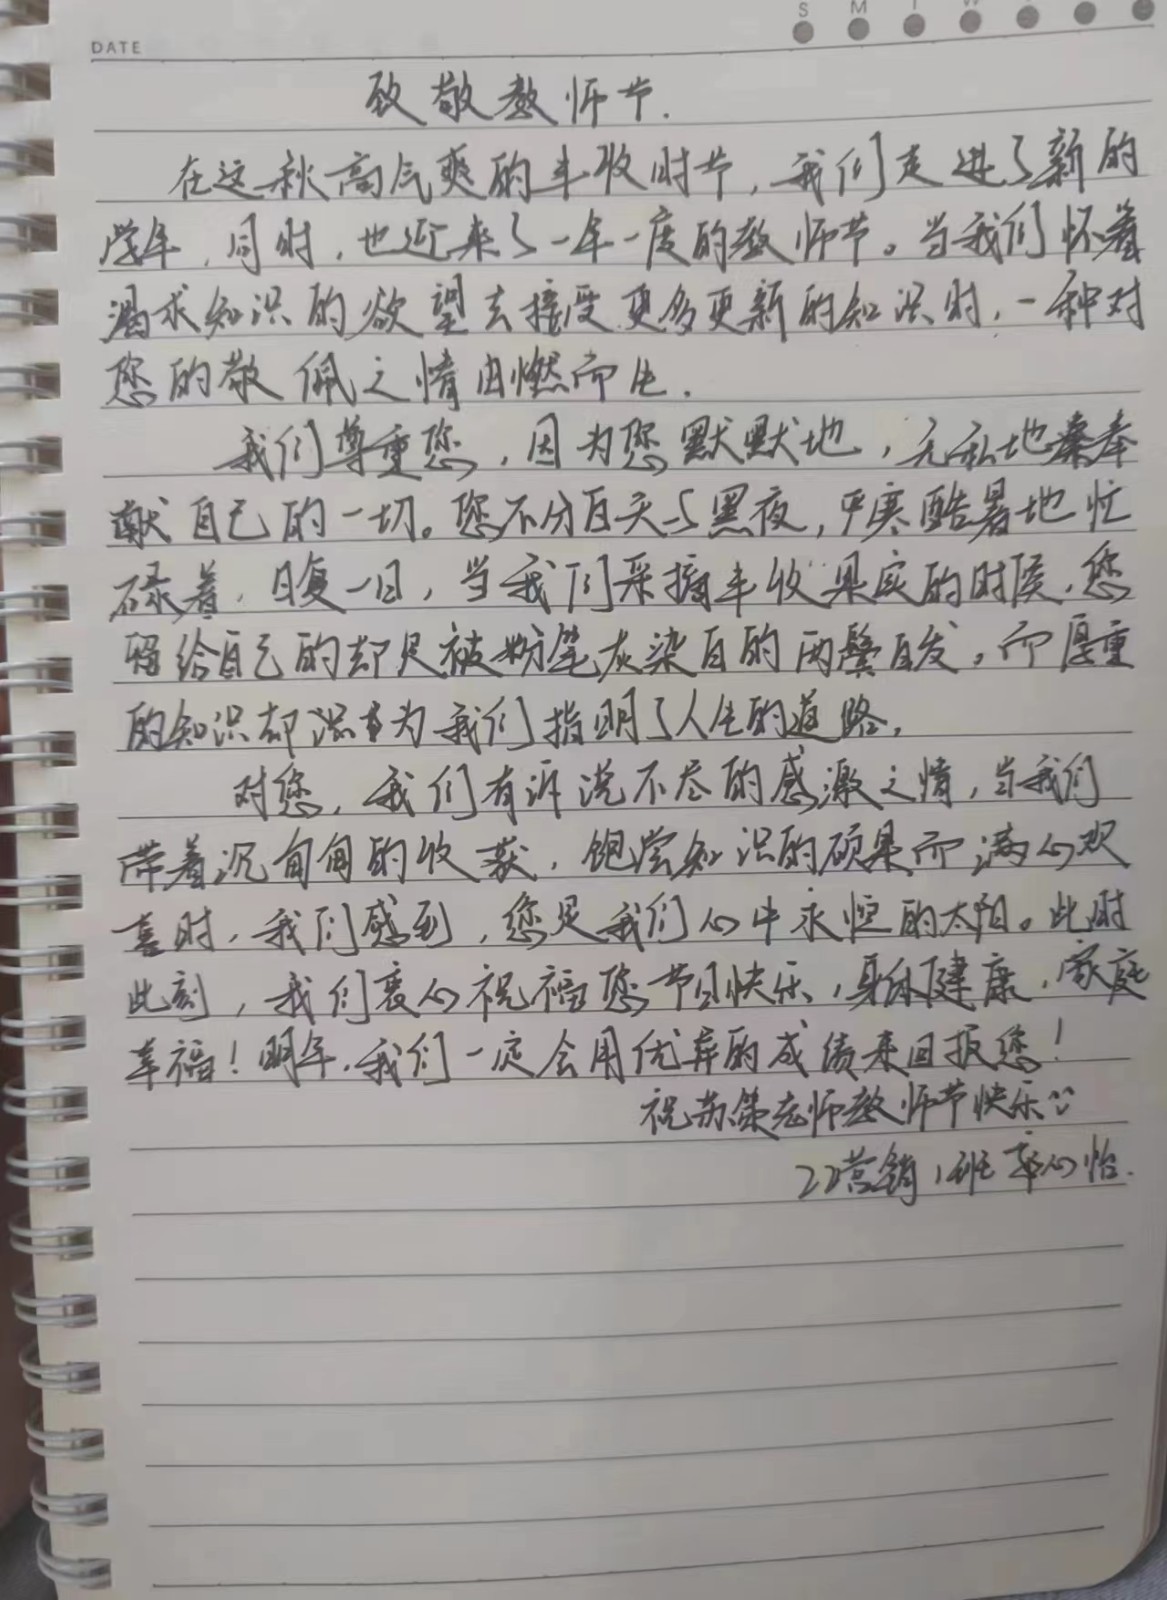 DATE
S M T W
致敬教师节.
在这秋高气爽的丰收时节,我们走进了新的
学年,同时,也迎来了一年一度的教师节。当我们怀着
渴求知识的欲望去接受更多更新的知识时,一种对
您的敬佩之情由燃而生.
我们尊重您,因为您默默地,无私地奉
献自己的一切。您不分白天与黑夜,严寒酷暑地忙
碌着,日复一日,当我们采摘丰收果实的时候,您
留给自己的却只被粉笔灰染白的两鬓白发。而厚重
的知识却为我们指明了人生的道路。
对您,我们有诉说不尽的感激之情,当我们
带着沉甸甸的收获,饱尝知识的硕果而满心欢
喜时,我们感到,您是我们心中永恒的太阳。此时
此刻,我们衷心祝福您节日快乐,身体健康,家庭
幸福!明年,我们一定会用优异的成绩来回报您!
祝苏策老师教师节快乐
22营销1班 心怡.